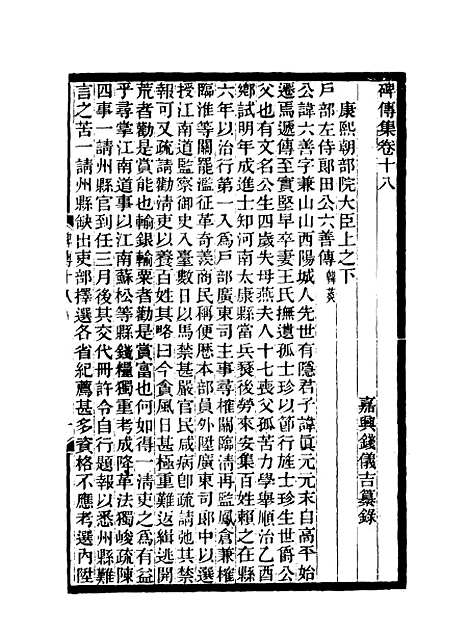 碑傳集卷十八
嘉興錢儀吉纂錄
康熙朝部院大臣上之下
戶部左侍郎田公六善傳 韓菼
公諱六善字兼山山西陽城人先世有隱君子諱眞元元末自高平始
遷焉遞傳至實堅早卒妻王氏撫遺孤士珍以節行旌士珍生世爵公
父也有文名公生四歲失母燕夫人十七喪父孤苦力學舉順治乙酉
鄉試明年成進士知河南太康縣當兵燹後勞來安集百姓賴之在縣
六年以治行第一入爲戶部廣東司主事尋榷關臨淸再監鳳倉兼榷
臨淮等關罷濫征革奇羨商民稱便歷本部員外陞廣東司郞中以選
授江南道監察御史入臺數日以馬禁甚嚴官民咸病卽疏請弛其禁
報可又疏請勸淸吏以養百姓其略曰今貪風日甚極重難返緝逃開
荒者勸是賞能也輸銀輸粟者勸是賞富也何如得一淸吏之爲有益
乎尋掌江南道事以江南蘇松等縣錢糧獨重考成降革法獨峻疏陳
四事一請州縣官到任三月後其交代冊許令自行題報以悉州縣難
言之苦一請州縣缺出吏部擇選各省紀薦甚多資格不應考選內陞
碑傳十八
一